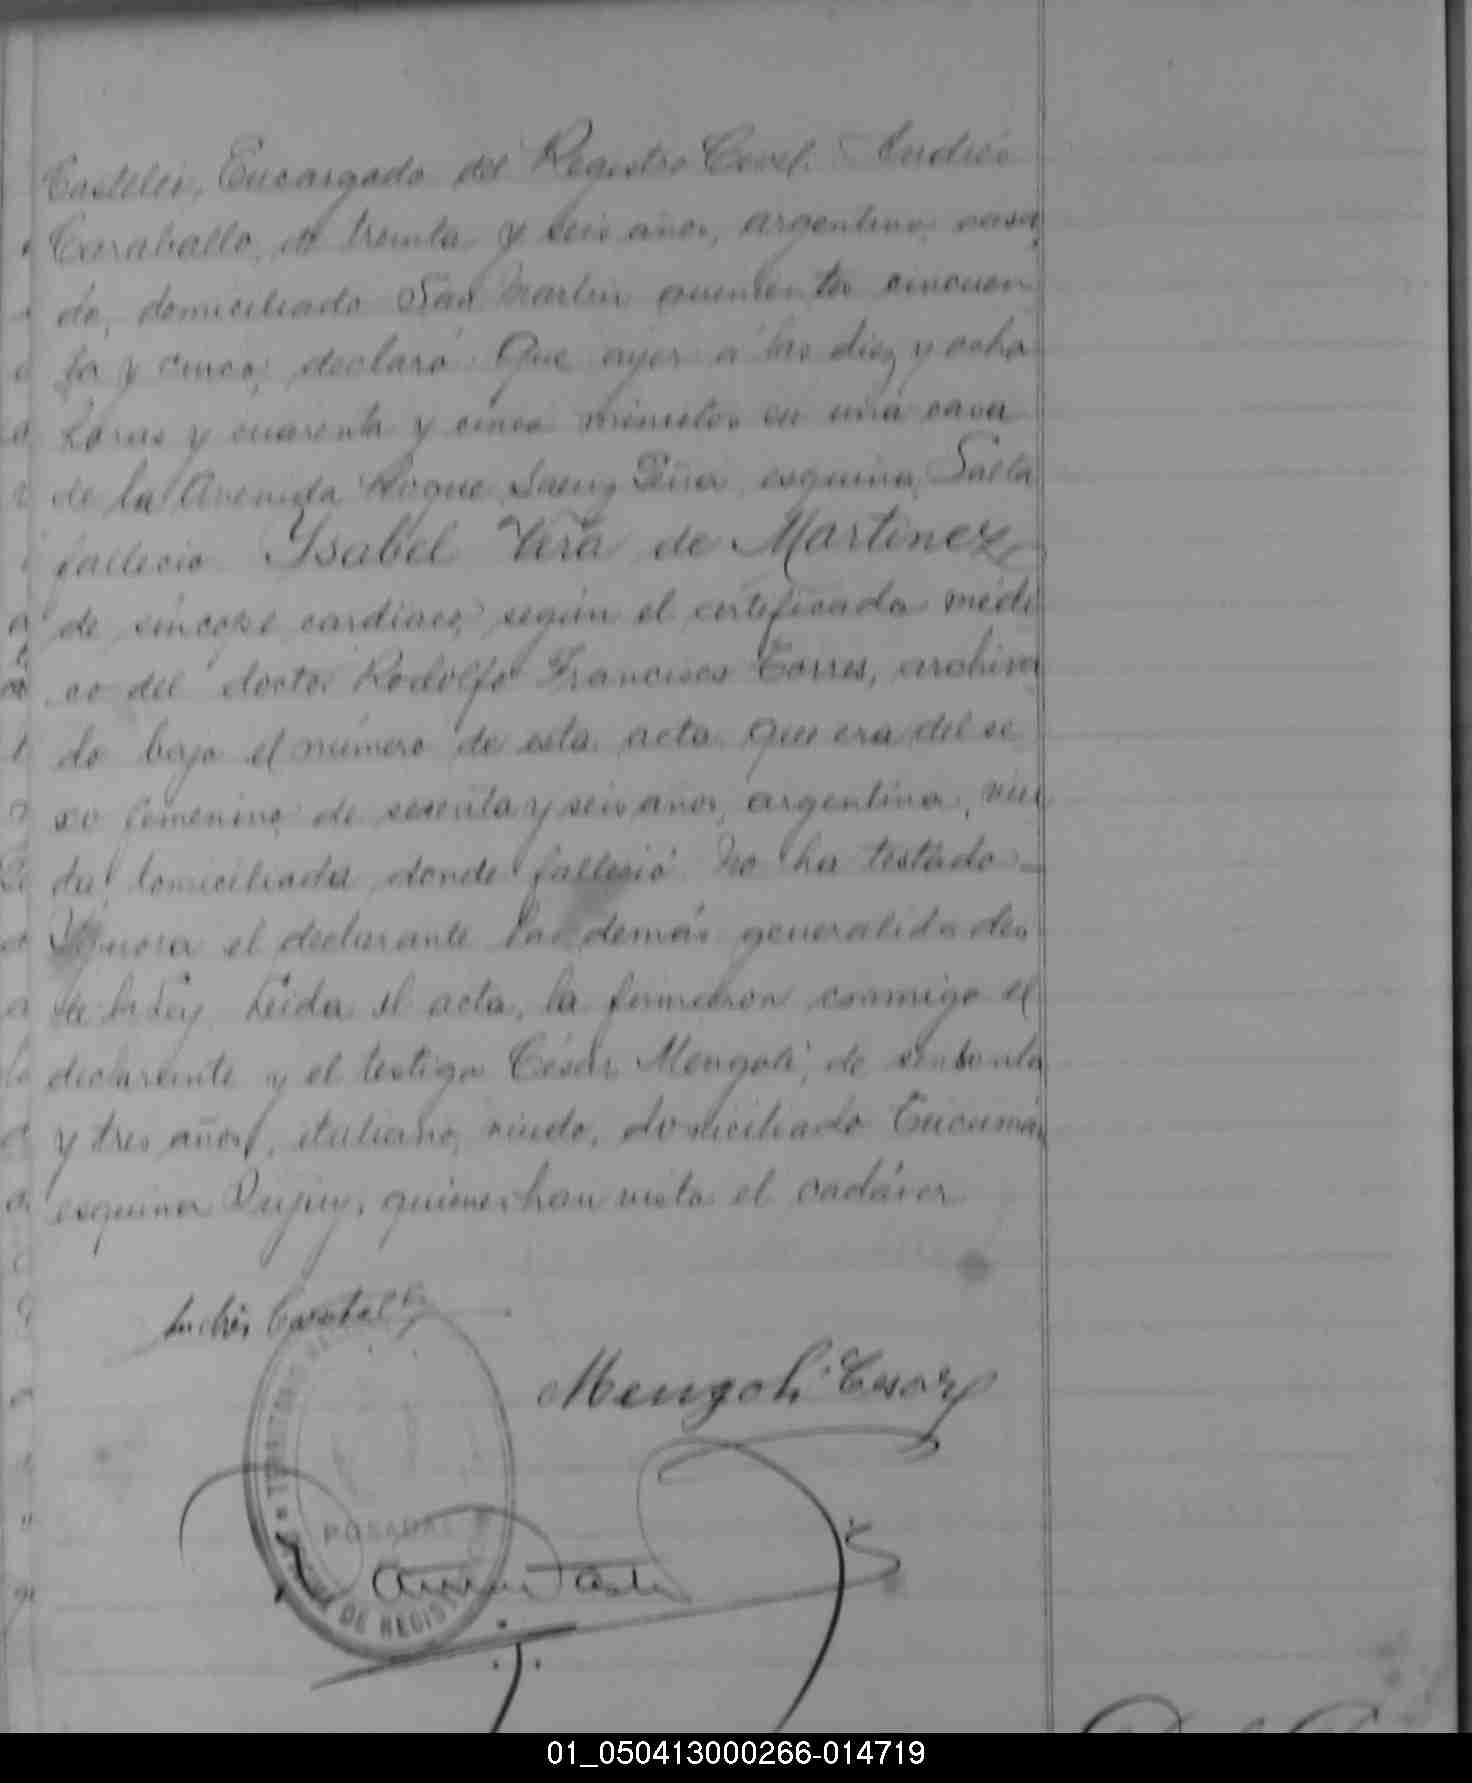 Castelli, Encargado del Registro Civil. Andrés
Caraballo, de treinta y seis años, argentino, casa
do, domiciliado San Martin cincuen
ta y cinco, declaró: Que ayer a las diez y ocho
horas y cuarenta y cinco minutos en una casa
de la Avenida Roque Saenz Peña esquina Salta
fallecio Ysabel Vera de Martinez
de síncope cardiaco, según el certificado médi
co del doctor Rodolfo Francisco Torres, archiva
do bajo el número de esta acta. Que era del se
xo femenino de sesenta y seis años, argentina, viu
da, domiciliada donde falleció. No ha testado
Ygnora el declarante las demás generalidades
de la Ley. Leida el acta, la firmaron conmigo el
declarante y el testigo César Mengoli, de sesenta
y tres años, italiano, viudo, domiciliado Tucumán
esquina Jujuy, quienes han visto el cadáver
Andrés Caraballo
Mengoli Cesar
POSADAS
DE REGIST
01_050413000266-014719